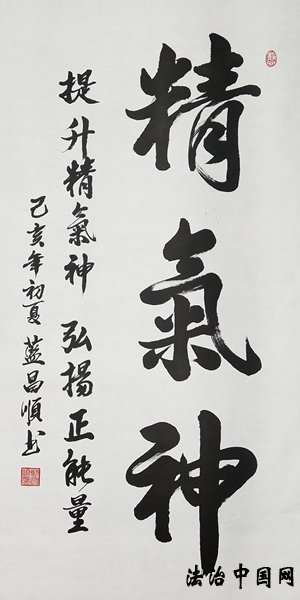 精氣神
提升精氣神 弘揚正能量
己亥年初夏 藍昌順书
法治中国网